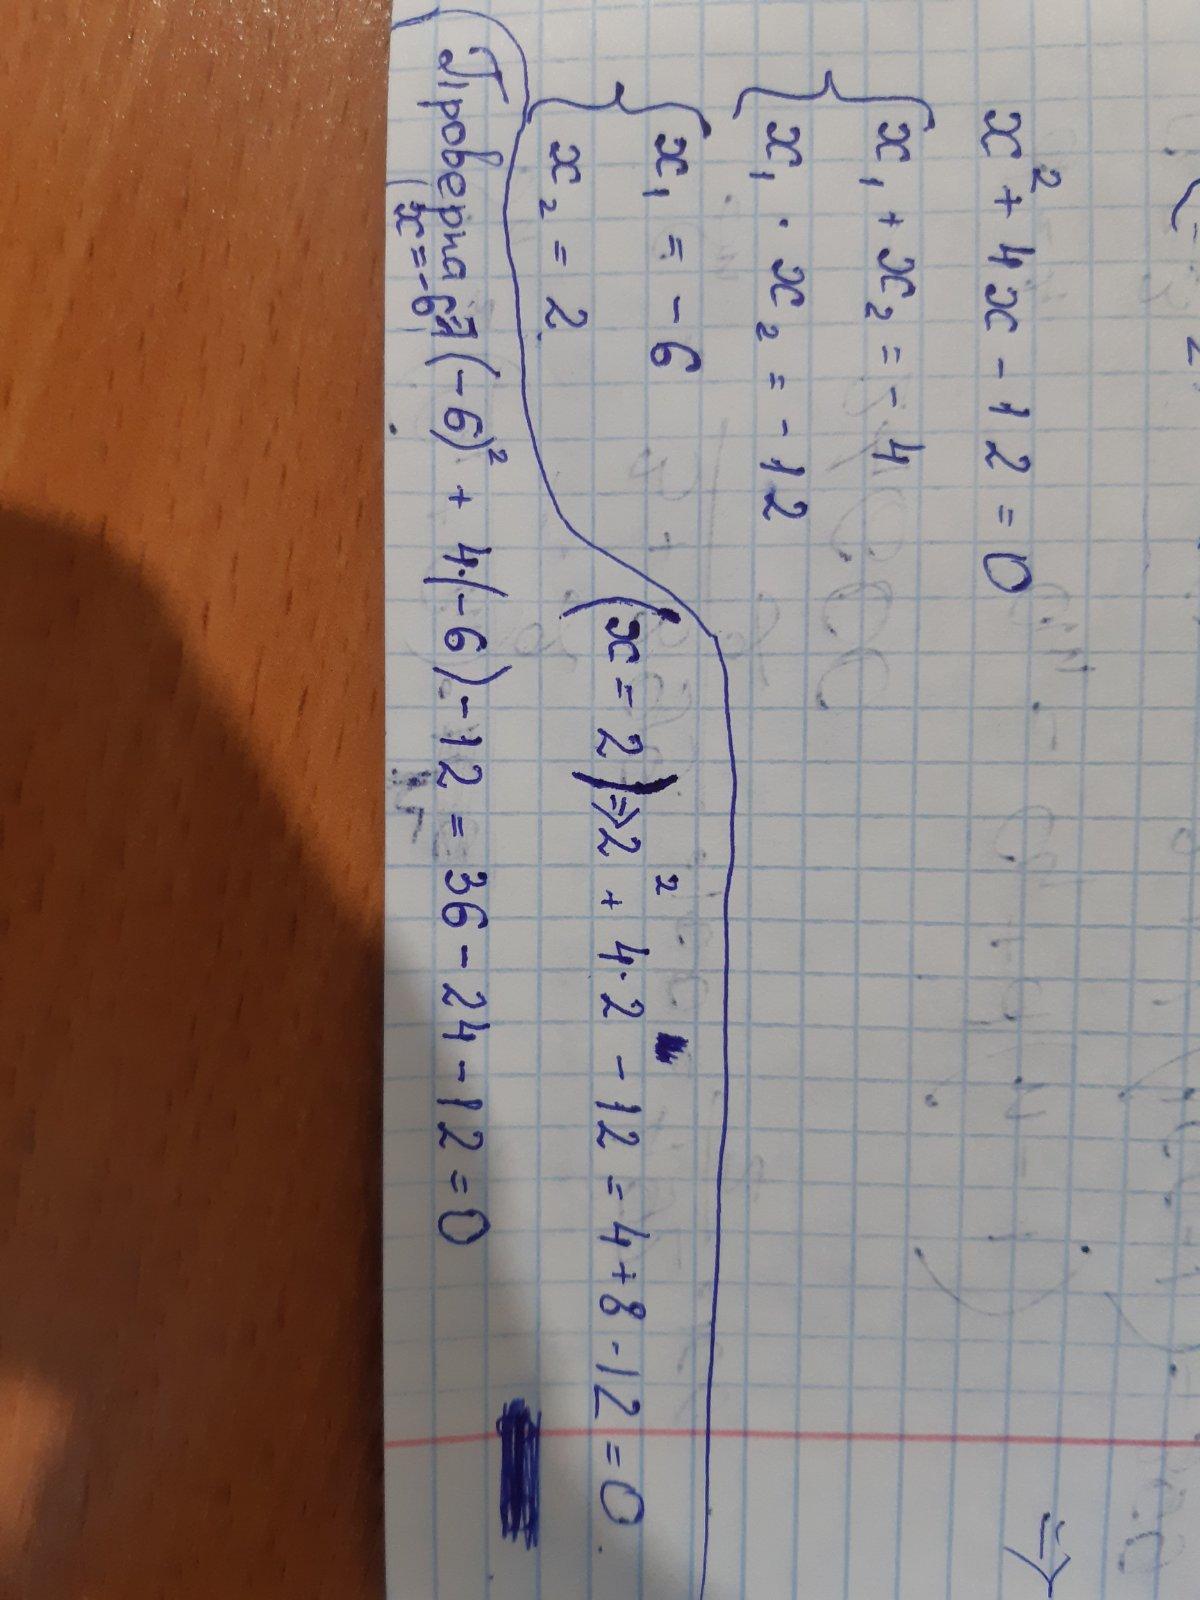 x² + 4x - 12 = 0
x₁ + x₂ = - 4
x₁ · x₂ = - 12
x₁ = - 6
x₂ = 2
(x = 2) ⇒ 2² + 4·2 - 12 = 4 + 8 - 12 = 0
Проверка
(x = -6) (-6)² + 4·(-6) - 12 = 36 - 24 - 12 = 0